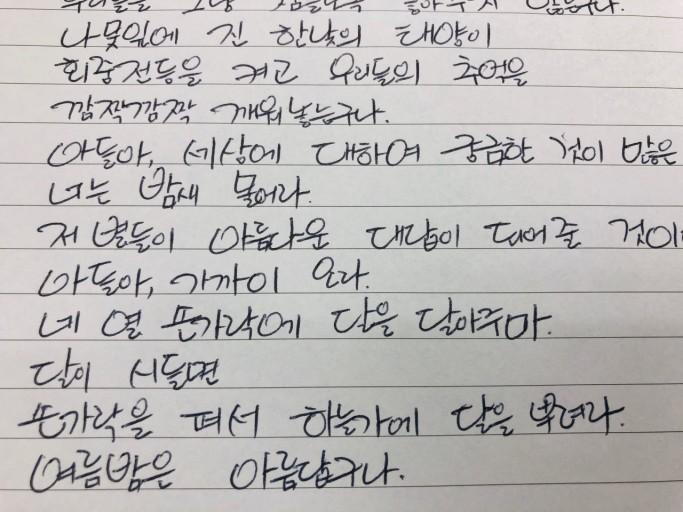 우리들을 그냥 잠들도록 놓아주지 않는구나.
나뭇잎에 진 한낮의 태양이
회중전등을 켜고 우리들의 추억을
깜짝깜짝 깨워놓는구나.
아들아, 세상에 대하여 궁금한 것이 많은
너는 밤새 물어라.
저 별들이 아름다운 대답이 되어줄 것이
아들아, 가까이 오라.
네 열 손가락에 달을 달아주마.
달이 시들면
손가락을 펴서 하늘가에 달을 뿌려라.
여름밤은 아름답구나.